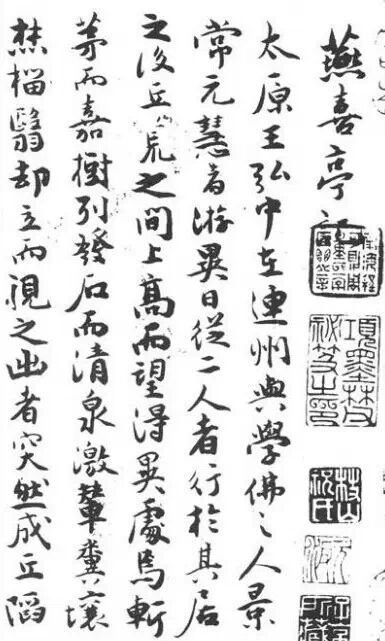 燕喜亭記
太原王弘中在連州與學佛之人景
常元慧者游異日從二人者行於其居
之後丘荒之間上高而望得異處焉斬
茅而嘉樹列發石而清泉激輦糞壤
焚椔翳却立而視之出者突然成丘陷
項墨林
祕笈之印
枝山
祝氏